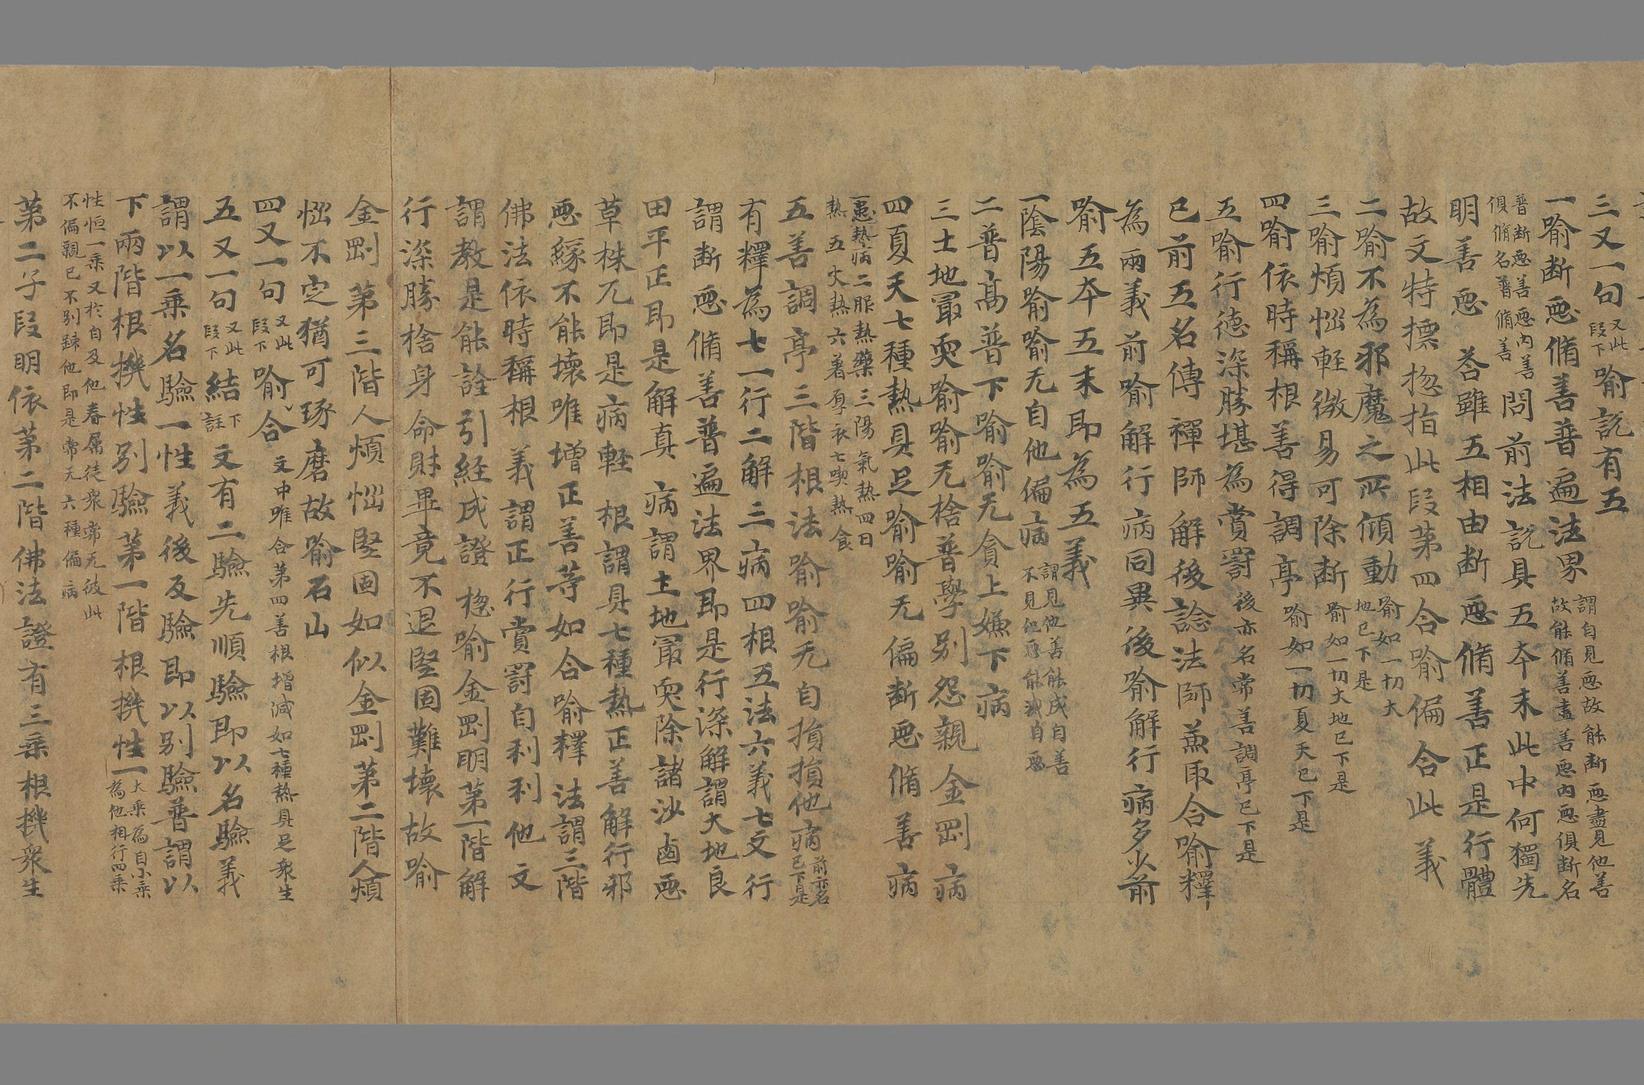 三又一句又此段下喻説有五
一喻断悪脩善普遍法界謂自見悪故能断悪盡見他善故能脩善盡善悪内悪俱断名
普断悪善悪内善俱脩名普脩善問前法説具五夲末此中何獨先
明善悪荅雖五相由断悪脩善正是行體
故文特摽揔指此段第四合喻偏合此義
二喻不為邪魔之所傾動喻如一切大地已下是
三喻煩惱輕微易可除断喻如一切大地已下是
四喻依時稱根善得調亭喻如一切夏天已下是
五喻行德深勝堪為賞罸後亦名常善調亭已下是
已前五名傳禪師解後諗法師並取合喻釋
為兩義前喻解行病同異後喻解行病多少前
喻五夲五末即為五義
一陰陽喻喻无自他偏病謂見他善能成自善不見他悪能滅自悪
二普髙普下喻喻无貪上嫌下病
三土地冣耎喻喻无捨普學別怨親金剛病
四夏天七種熱具足喻喻无偏断悪脩善病
一患熱病二服熱藥三陽氣熱四日熱五火熱六著厚衣七喫熱食
五善調亭三階根法喻喻无自損損他病前亦名已下是
有釋為七一行二解三病四根五法六義七文行
謂断悪脩善普遍法界即是行深解謂大地良
田平正即是解真病謂土地冣耎除諸沙鹵悪
草株兀即是病輕根謂具七種熱正善解行邪
悪緣不能壞唯增正善等如合喻釋法謂三階
佛法依時稱根義謂正行賞罸自利利他文
謂教是能詮引経成證揔喻金剛明第一階解
行深勝捨身命財畢竟不退堅固難壞故喻
金剛第三階人煩惱堅固如似金剛第二階人煩
惱不定猶可琢磨故喻石山
四又一句又此段下喻合文中唯合第四善根增減如七種熱具足衆生
五又一句又此段下結下註文有二驗先順驗即以名驗義
謂以一乘名驗一性義後反驗即以别驗普謂以
下兩階根機性别驗第一階根機性一大乘為自小乘為他相行四乘
性恒一乘又於自及他眷属徒衆常无彼此不偏親已不别踈他即是常无六種偏病
第二子段明依第二階佛法證有三乘根機衆生